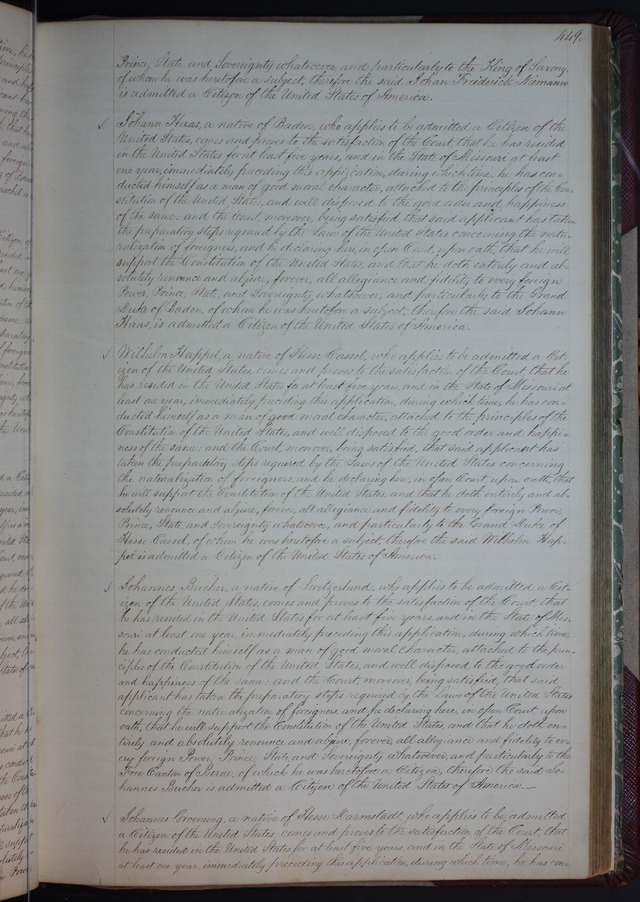 449.
Prince, State, and Sovereignty whatsoever and particularly to the King of Saxony,
of whom he was heretofore a subject, therefore the said Johan Friederick Nömann
is admitted a Citizen of the United States of America.
Johann Haas, a native of Baden, who applies to be admitted a Citizen of the
United States, comes and proves to the satisfaction of the Court that he has resided
in the United States for at least five years, and in the State of Missouri at least
one year, immediately preceding this application, during which time, he has con-
ducted himself as a man of good moral character, attached to the principles of the Con-
stitution of the United States, and well disposed to the good order and happiness
of the same: and the Court, moreover, being satisfied, that said applicant has taken
the preparatory steps required by the Laws of the United States concerning the natu-
ralization of foreigners, and he declaring here, in open Court, upon oath, that he will
support the Constitution of the United States, and that he doth entirely and ab-
solutely renounce and abjure, forever, all allegiance and fidelity to every foreign
Power, Prince, State, and Sovereignty whatsoever, and particularly to the Grand
Duke of Baden, of whom he was heretofore a subject, therefore the said Johann
Haas, is admitted a Citizen of the United States of America.
Wilhelm Happel, a native of Hesse Cassel, who applies to be admitted a Cit-
izen of the United States, comes and proves to the satisfaction of the Court, that he
has resided in the United States for at least five years, and in the State of Missouri at
least one year, immediately preceding this application, during which time, he has con-
ducted himself as a man of good moral character, attached to the principles of the
Constitution of the United States, and well disposed to the good order and happi-
ness of the same: and the Court, moreover, being satisfied, that said applicant has
taken the preparatory steps required by the Laws of the United States concerning
the naturalization of foreigners, and he declaring here, in open Court, upon oath, that
he will support the Constitution of the United States, and that he doth entirely and ab-
solutely renounce and abjure, forever, all allegiance and fidelity to every foreign Power,
Prince, State, and Sovereignty whatsoever, and particularly to the Grand Duke of
Hesse Cassel, of whom he was heretofore a subject, therefore the said Wilhelm Hap-
pel is admitted a Citizen of the United States of America.
Johannes Bucher, a native of Switzerland, who applies to be admitted a Cit-
izen of the United States, comes and proves to the satisfaction of the Court, that
he has resided in the United States for at least five years, and in the State of Mis-
souri at least one year, immediately preceding this application, during which time,
he has conducted himself as a man of good moral character, attached to the prin-
ciples of the Constitution of the United States, and well disposed to the good order
and happiness of the same: and the Court, moreover, being satisfied, that said
applicant has taken the preparatory steps required by the Laws of the United States
concerning the naturalization of foreigners, and he declaring here, in open Court, upon
oath, that he will support the Constitution of the United States, and that he doth en-
tirely and absolutely renounce and abjure, forever, all allegiance and fidelity to ev-
ery foreign Power, Prince, State, and Sovereignty whatsoever, and particularly to the
Free Canton of Berne, of which he was heretofore a Citizen, therefore the said Jo-
hannes Bucher is admitted a Citizen of the United States of America.
Johannes Groening, a native of Hesse Darmstadt, who applies to be admitted
a Citizen of the United States, comes and proves to the satisfaction of the Court, that
he has resided in the United States for at least five years, and in the State of Missouri
at least one year, immediately preceding this application, during which time, he has con-